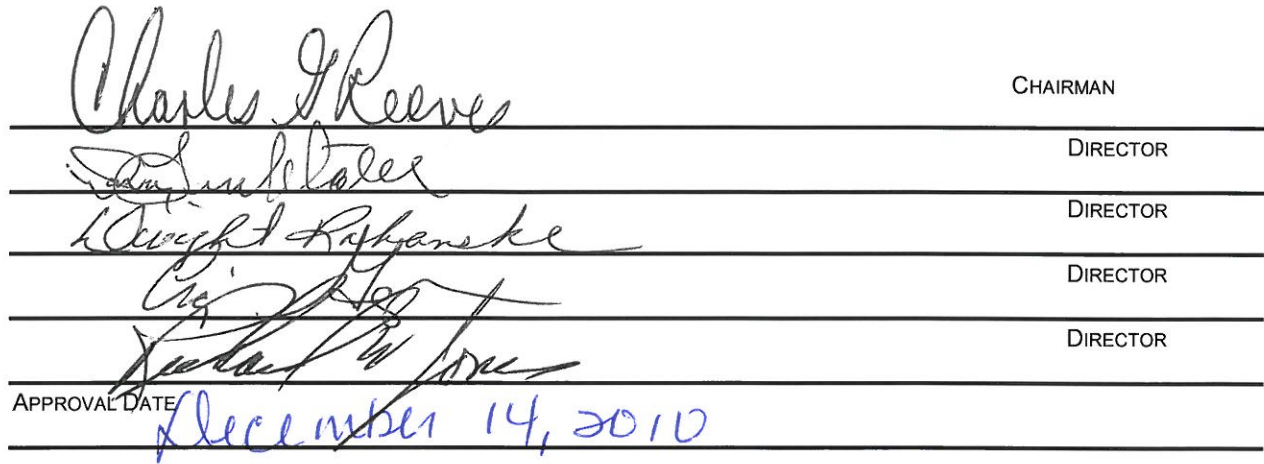 Charles G Reeves CHAIRMAN
DIRECTOR
Dwight DIRECTOR
DIRECTOR
Richard W Jones DIRECTOR
APPROVAL DATE December 14, 2010